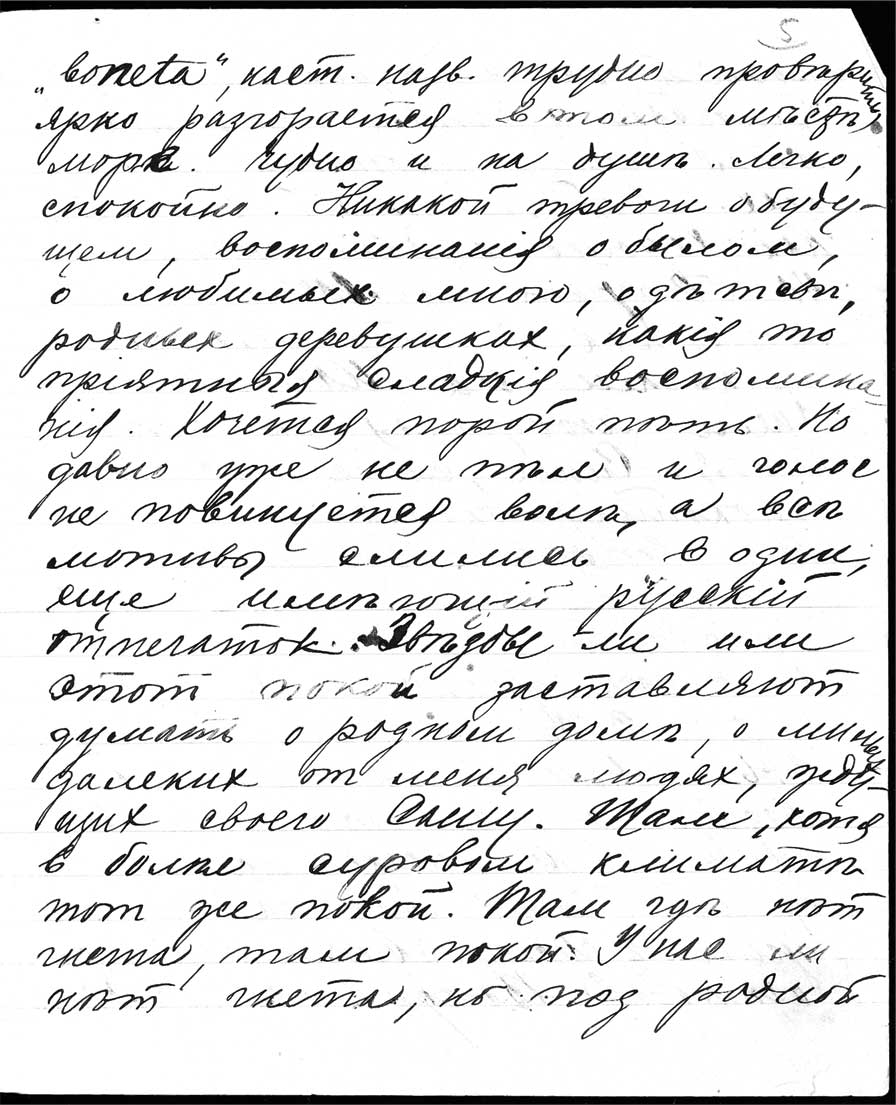 5
„boneta“, наст. назв. трудно
ярко разгорается в том мѣстѣ
моря. Чудно и на душѣ. Легко,
спокойно. Никакой тревоги о буду-
щем, воспоминанія о былом,
о любимых мною, о дѣтствѣ,
родных деревушках, какія то
пріятныя сладкія воспомина-
нія. Хочется порой пѣть. Но
давно уже не пѣл и голос
не повинуется волѣ, а всѣ
мотивы слились в один,
еще имѣющій русскій
отпечаток. Звѣзды ли или
этот покой заставляют
думать о родном домѣ, о милых
далеких от меня людях, жду-
щих своего Сашу. Там, хотя
в болѣе суровом климатѣ
тот же покой. Там гдѣ нѣт
гнета, там покой. У нас ли
нѣт гнета, но под родной